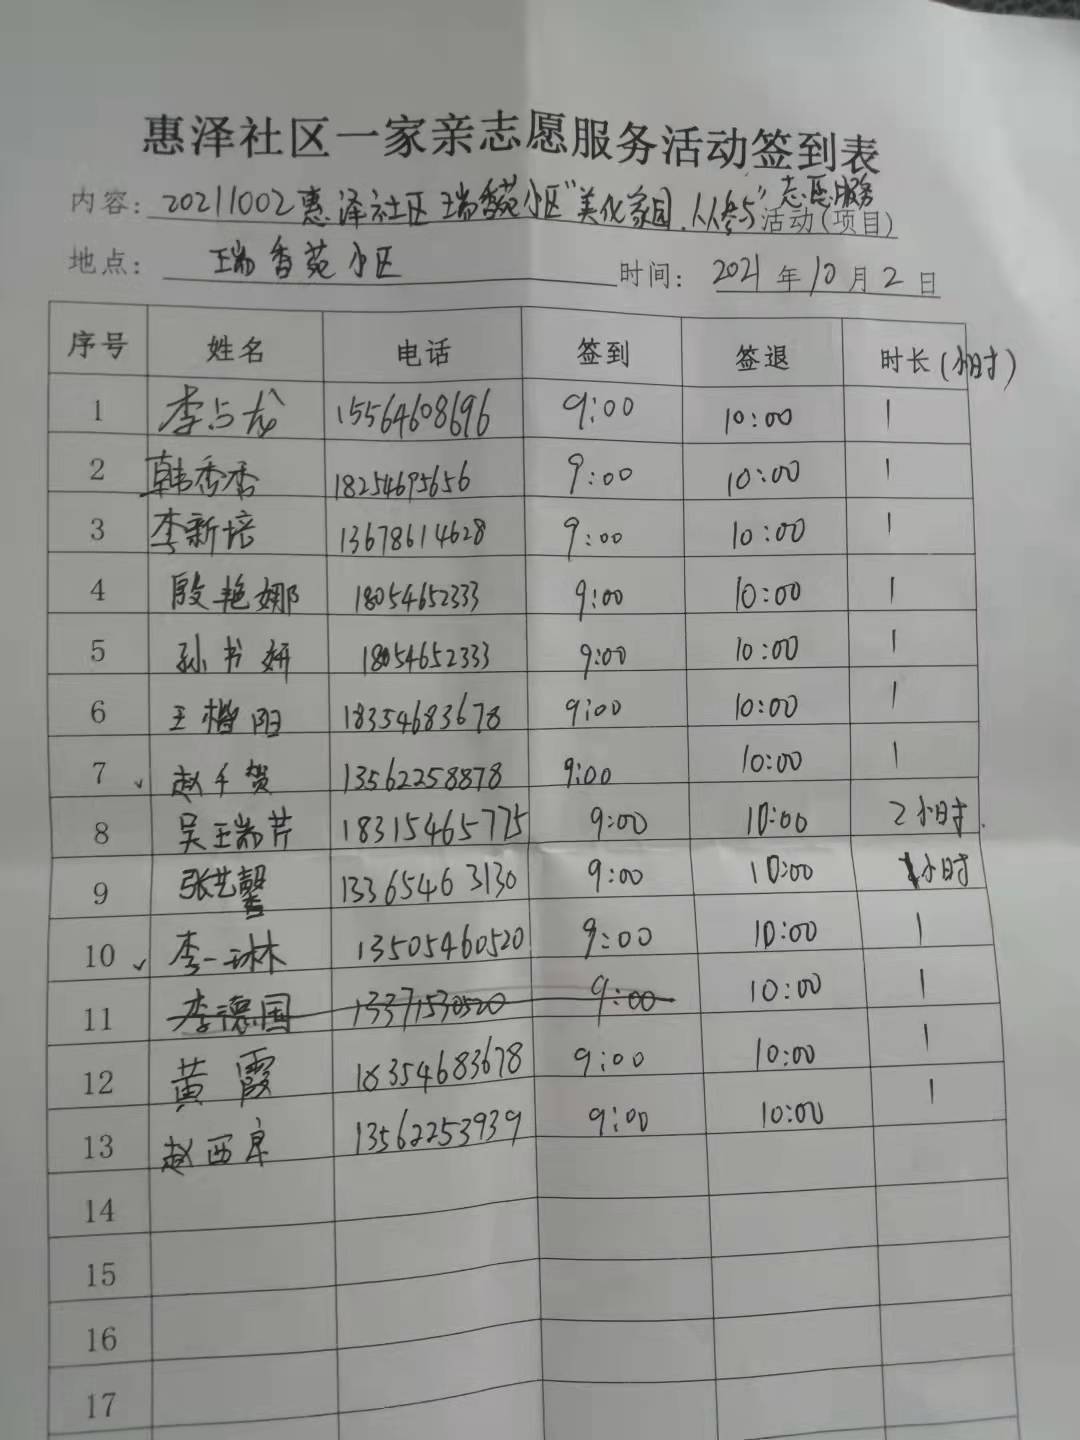 惠泽社区一家亲志愿服务活动签到表
内容: 20211002惠泽社区瑞香苑小区"美化家园,人人参与"志愿服务活动(项目)
地点: 瑞香苑小区 时间: 2021年10月2日
序号 姓名 电话 签到 签退 时长(小时)
1 李占龙 15564608696 9:00 10:00 1
2 韩秀香 18254695656 9:00 10:00 1
3 李新培 13678614628 9:00 10:00 1
4 殷艳娜 18054652333 9:00 10:00 1
5 孙书妍 18054652333 9:00 10:00 1
6 王楷阳 18354683678 9:00 10:00 1
7 赵千贺 13562258878 9:00 10:00 1
8 吴瑞芹 18315465775 9:00 10:00 2小时.
9 张艺馨 13365463130 9:00 10:00 1小时
10 李一琳 13505460520 9:00 10:00 1
11 李德国 13371530520 9:00 10:00 1
12 黄霞 18354683678 9:00 10:00 1
13 赵西 13562253939 9:00 10:00 1
14
15
16
17